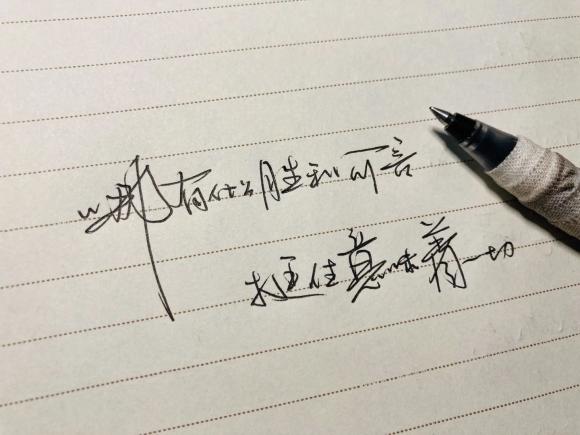 哪有什么胜利可言
挺住意味着一切